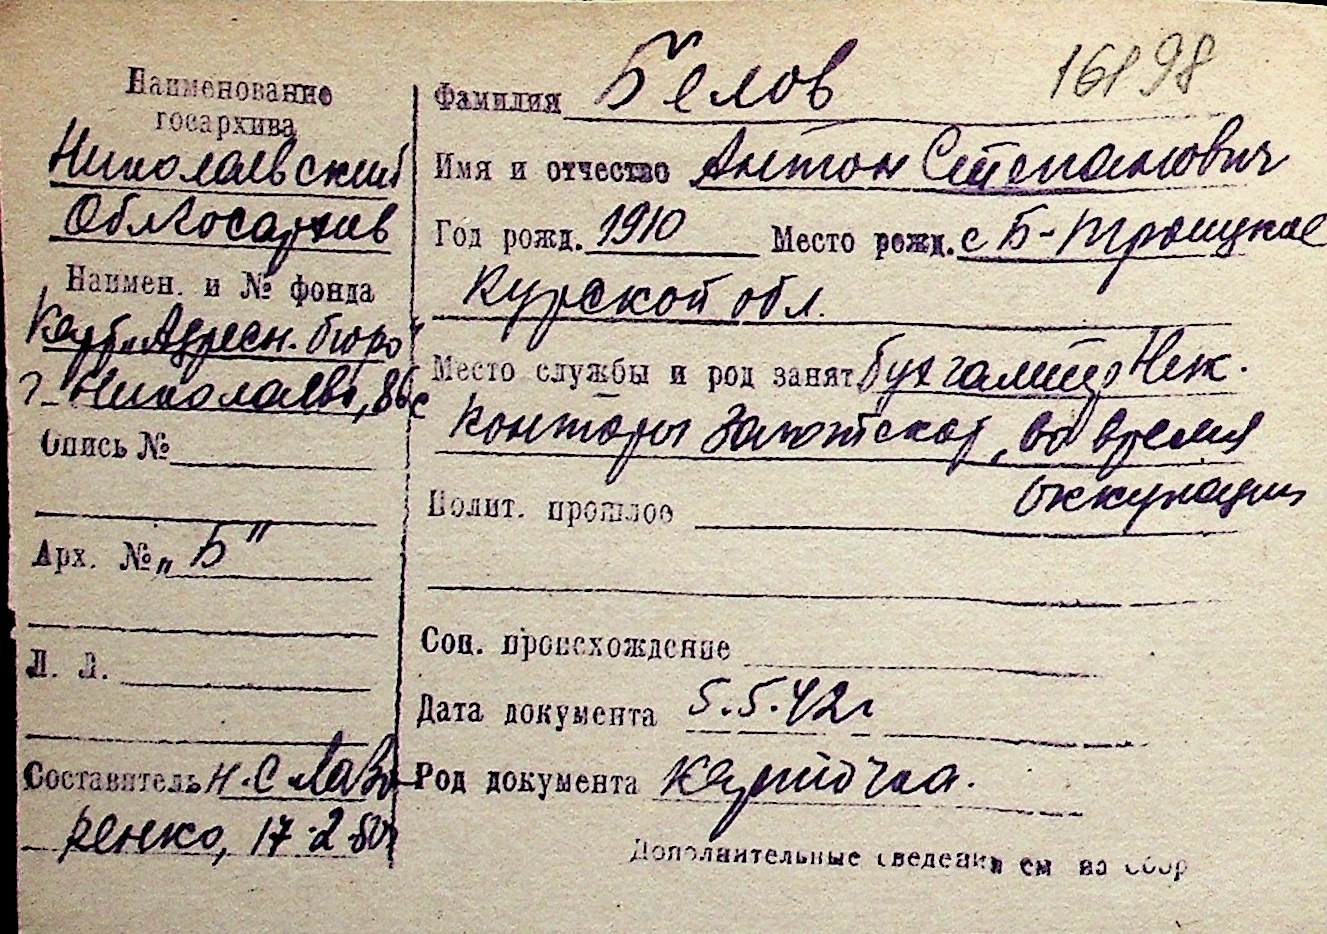 16898
Наименование
госархива
Николаевский
Облгосархив
Наимен. и № фонда
"Адресн. бюро"
г. Николаева,
Опись №
Арх. № „Б"
Л. Л.
Составитель Н. С Лазо-
ренко, 17.2.50г
Фамилия Белов
Имя и отчество Антон Степанович
Год рожд. 1910 Место рожд. с Б-Троицкое
Курской обл.
Место службы и род занят. бухгалтер Ник.
конторы Заготскот, во время
оккупации
Полит. прошлое
Соц. происхождение
Дата документа 5.5.42г
Род документа карточка.
Дополнительные сведения см на обор